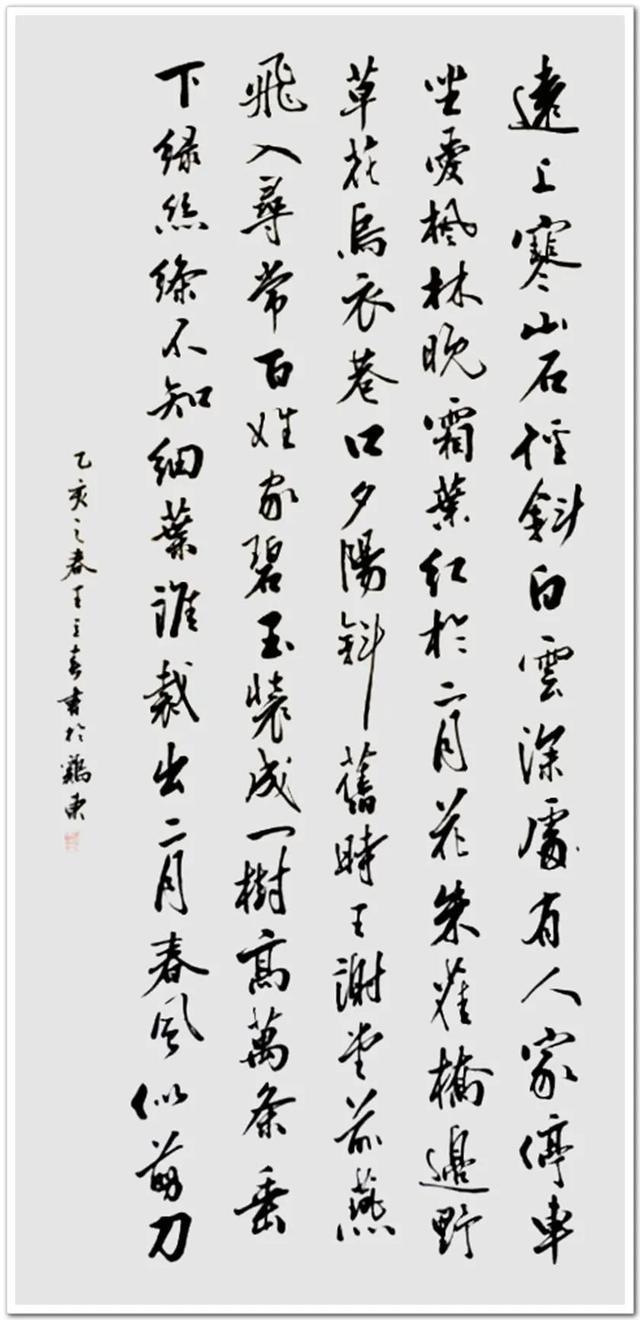 遠上寒山石徑斜白雲深處有人家停車
坐愛楓林晚霜葉紅於二月花朱雀橋邊野
草花烏衣巷口夕陽斜舊時王謝堂前燕
飛入尋常百姓家碧玉裝成一樹高萬条垂
下綠絲絛不知細葉誰裁出二月春風似剪刀
乙亥之春王書於鷄東